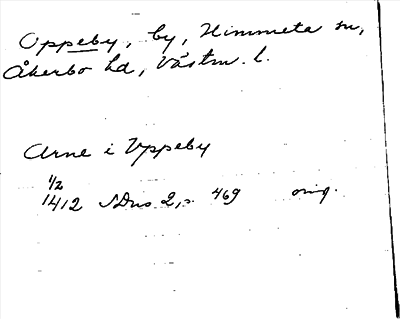 Oppeby, by, Himmeta sn,
Åkerbo hd, Västm. l.
Arne i Vppeby
1/2
1412 SDns 2, s. 469 orig.